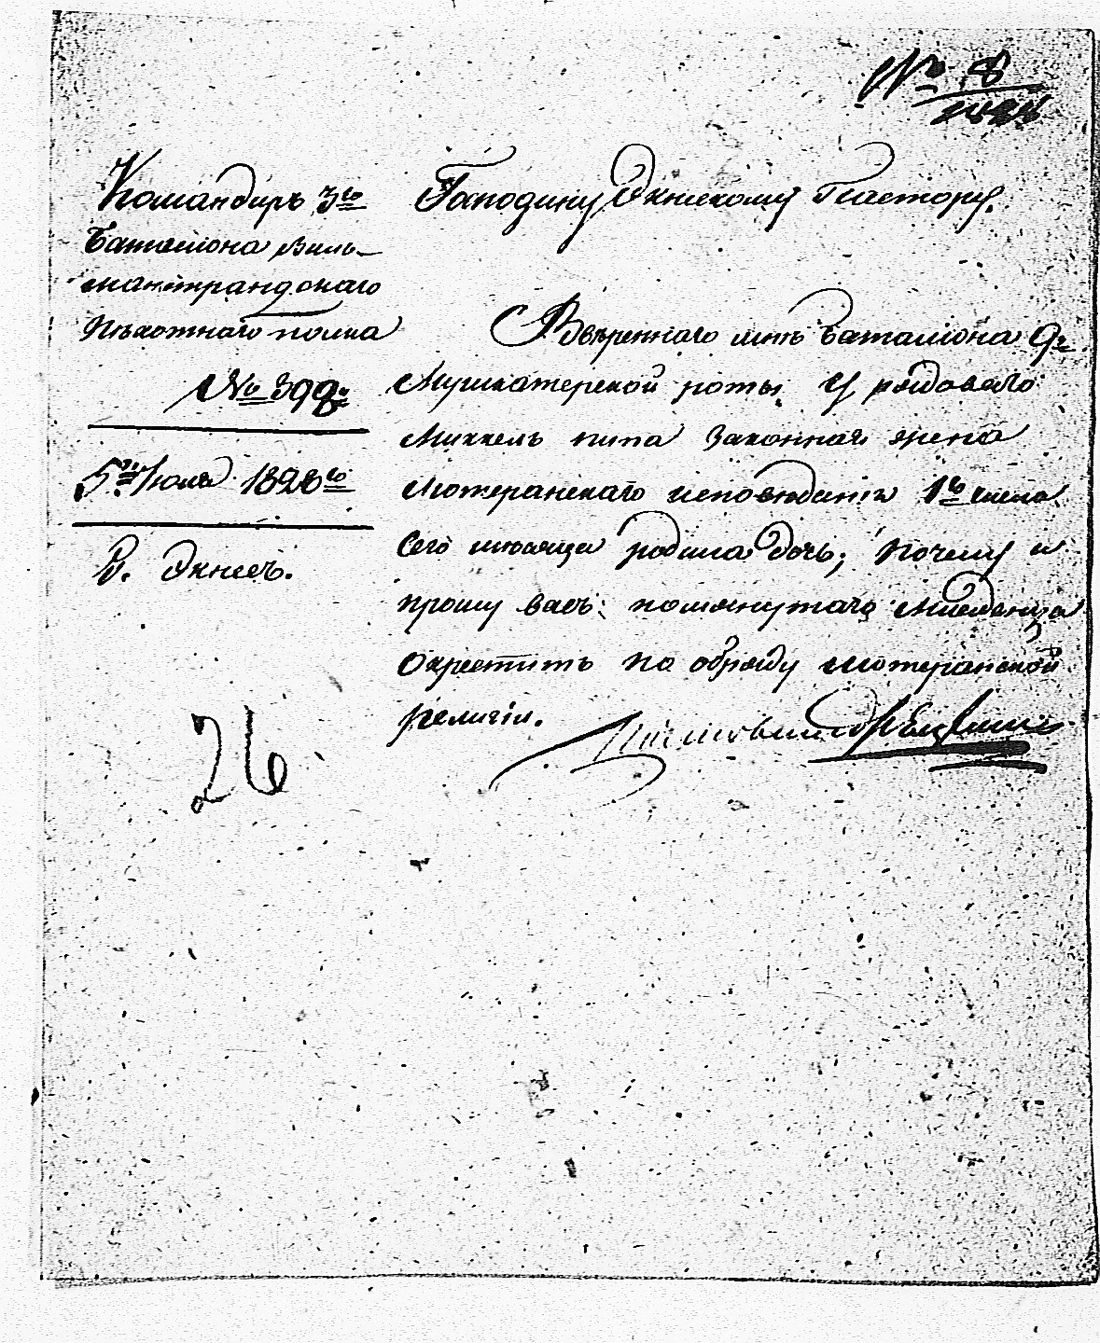 № 8
1828
Командиръ 3го
Баталіона Виль-
манстрандскаго
Пѣхотнаго полка
№ 399.
5го Іюля 1828го
Р. Экнесъ.
26
Господину Экнескому Пастору.
Ввѣреннаго мнѣ баталіона 9й
Мушкатерской роты, у рядоваго
Миккель пипа законная жена
Лютеранскаго исповѣданія 1го числа
Сего месяца родила дочь; почему и
прошу васъ: помянутаго младенца
окрестить по обряду лютеранской
религіи.